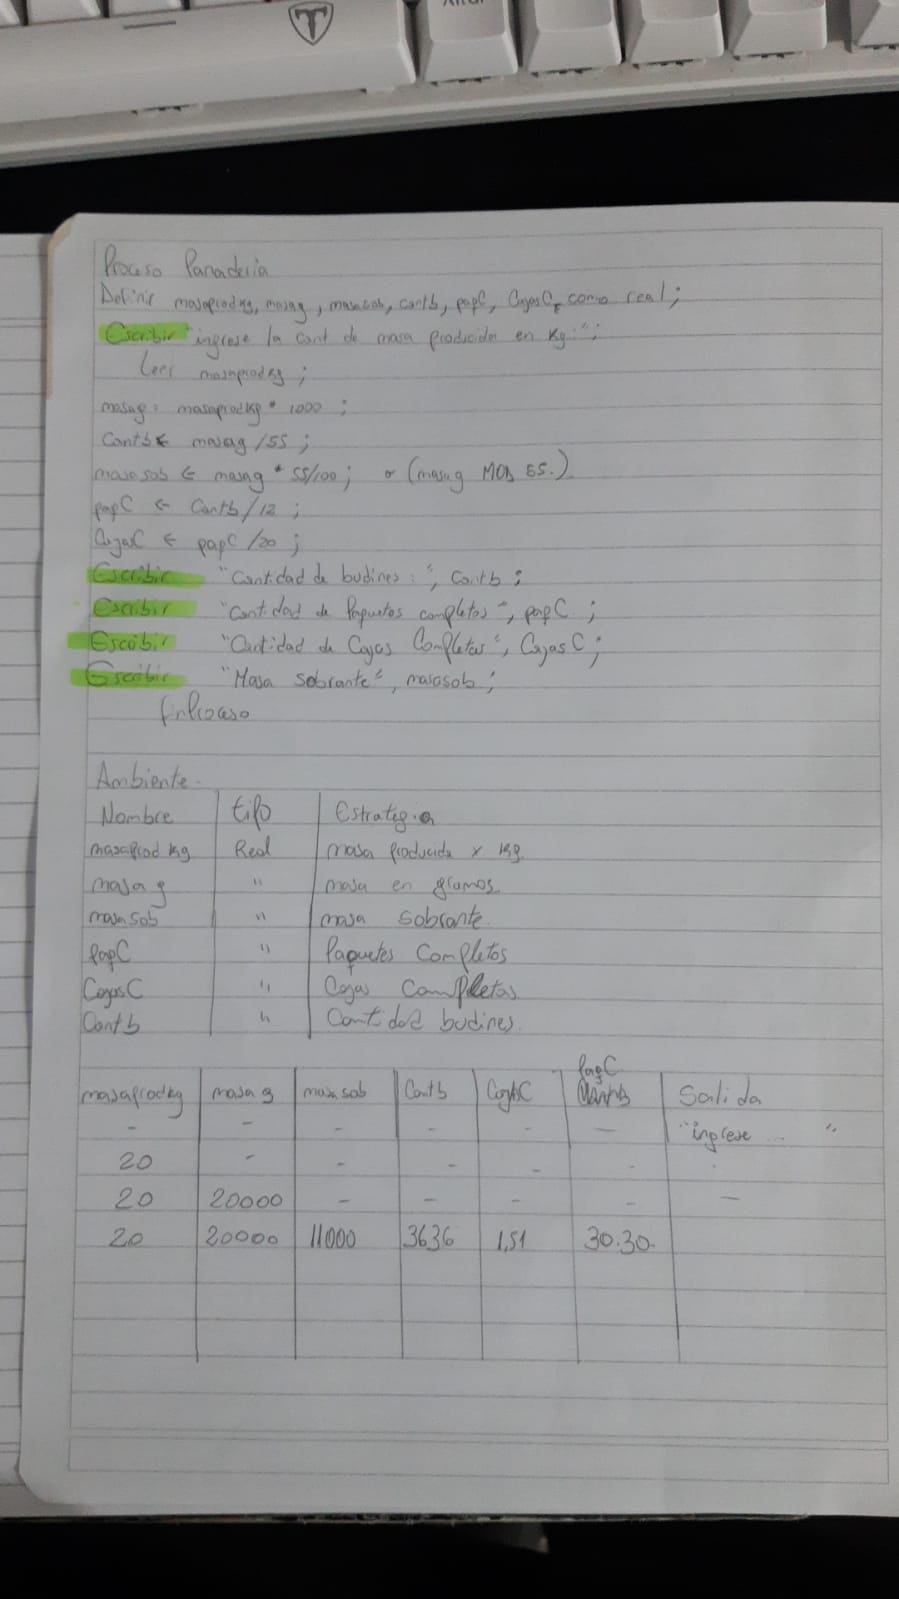 Proceso Panaderia
Definir masaprodkg, masag, masasob, cantb, paqC, CajasC, como real;
Escribir "ingrese la cant de masa producida en kg:";
Leer masaprodkg;
masag: masaprodkg * 1000 ;
Cantb ← masag /55 ;
masasob ← masag * 55/100; o (masag MOD 55.)
paqC ← Cantb/12 ;
CajaC ← paqC /20 ;
Escribir "Cantidad de budines:", Cantb ;
Escribir "Cantidad de Paquetes completos", paqC ;
Escribir "Cantidad de Cajas Completas", CajasC ;
Escribir "Masa Sobrante", masasob ;
FinProceso
Ambiente.
Nombre tipo Estrategia
masaprod kg Real masa producida x kg.
masa g " masa en gramos
masa sob " masa sobrante.
PaqC " Paquetes Completos
CajasC " Cajas Completas
Cantb " Cantidad budines.
masaprodkg masa g masa sob Cantb CajaC PaqC Salida
- - - - - - "ingrese ... "
20 - - - - - -
20 20000 - - - - -
20 20000 11000 3636 1,51 30.30.